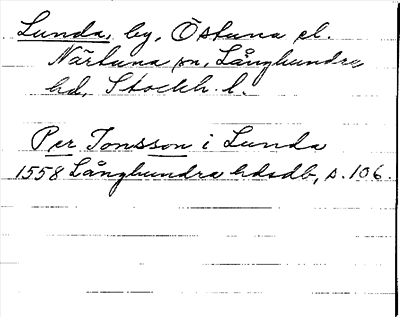 Lunda, by, Östuna el.
Närtuna sn, Långhundra
hd, Stockh. l.
Per Jonsson i Lunda
1558 Långhundra hdsdb, s. 106.